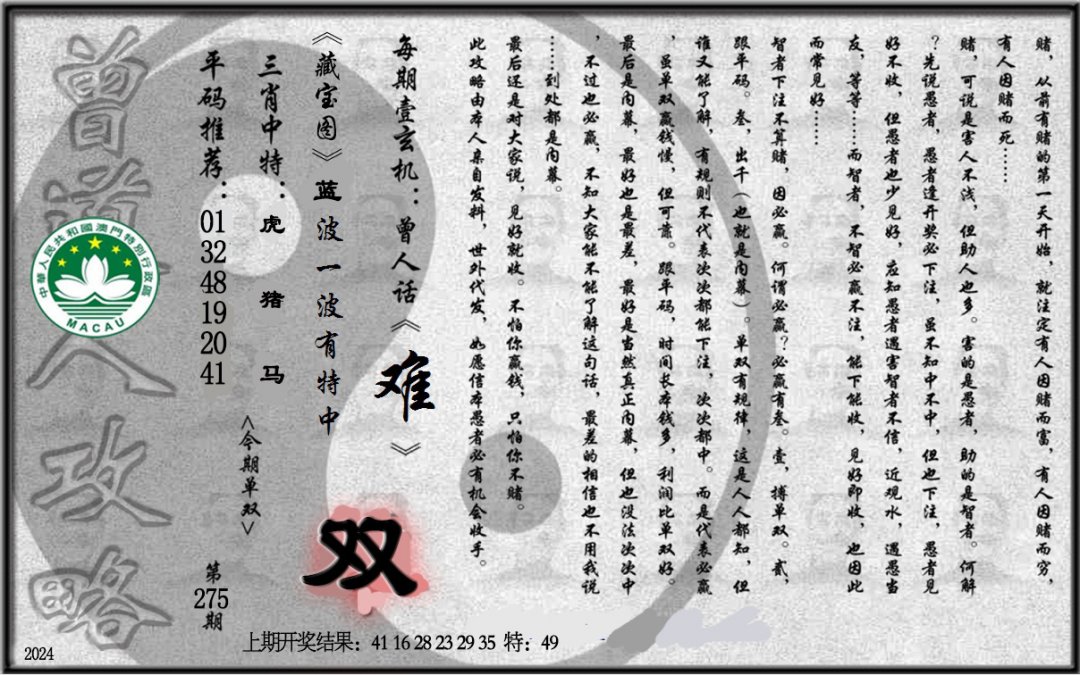 赌，从前有赌的第一天开始，就注定有人因赌而富，有人因赌而穷，
有人因赌而死……
赌，可说是害人不浅，但助人也多。害的是愚者，助的是智者。何解
？先说愚者，愚者逢开奖必下注，虽不知中不中，但也下注，愚者见
好不收，但愚者也少见好，应知愚者遇害智者不信，近观水，遇愚当
友，等等……而智者，不智必赢不注，能下能收，见好即收，也因此
而常见好……
智者下注不算赌，因必赢。何谓必赢？必赢有叁。壹，搏单双。贰，
跟平码。叁，出千（也就是内幕）。单双有规律，这是人人都知，但
谁又能了解，有规则不代表次次都能下注，次次都中。而是代表必赢
，虽单双赢钱慢，但可靠。跟平码，时间长本钱多，利润比单双好。
最后是内幕，最好也是最差，最好是当然真正内幕，但也没法次次中
，不过也必赢，不知大家能不能了解这句话，最差的相信也不用我说
……到处都是内幕。
最后还是对大家说，见好就收。不怕你赢钱，只怕你不赌。
此攻略由本人亲自发料，世外代发，如愿信本愚者必有机会收手。
每期壹玄机：曾人话《难》
《藏宝图》蓝波一波有特中
双
三肖中特：虎 猪 马
<今期单双>
平码推荐：01 32 48 19 20 41
第275期
曾道人攻略
中華人民共和國澳門特別行政區
MACAU
上期开奖结果：41 16 28 23 29 35 特：49
2024